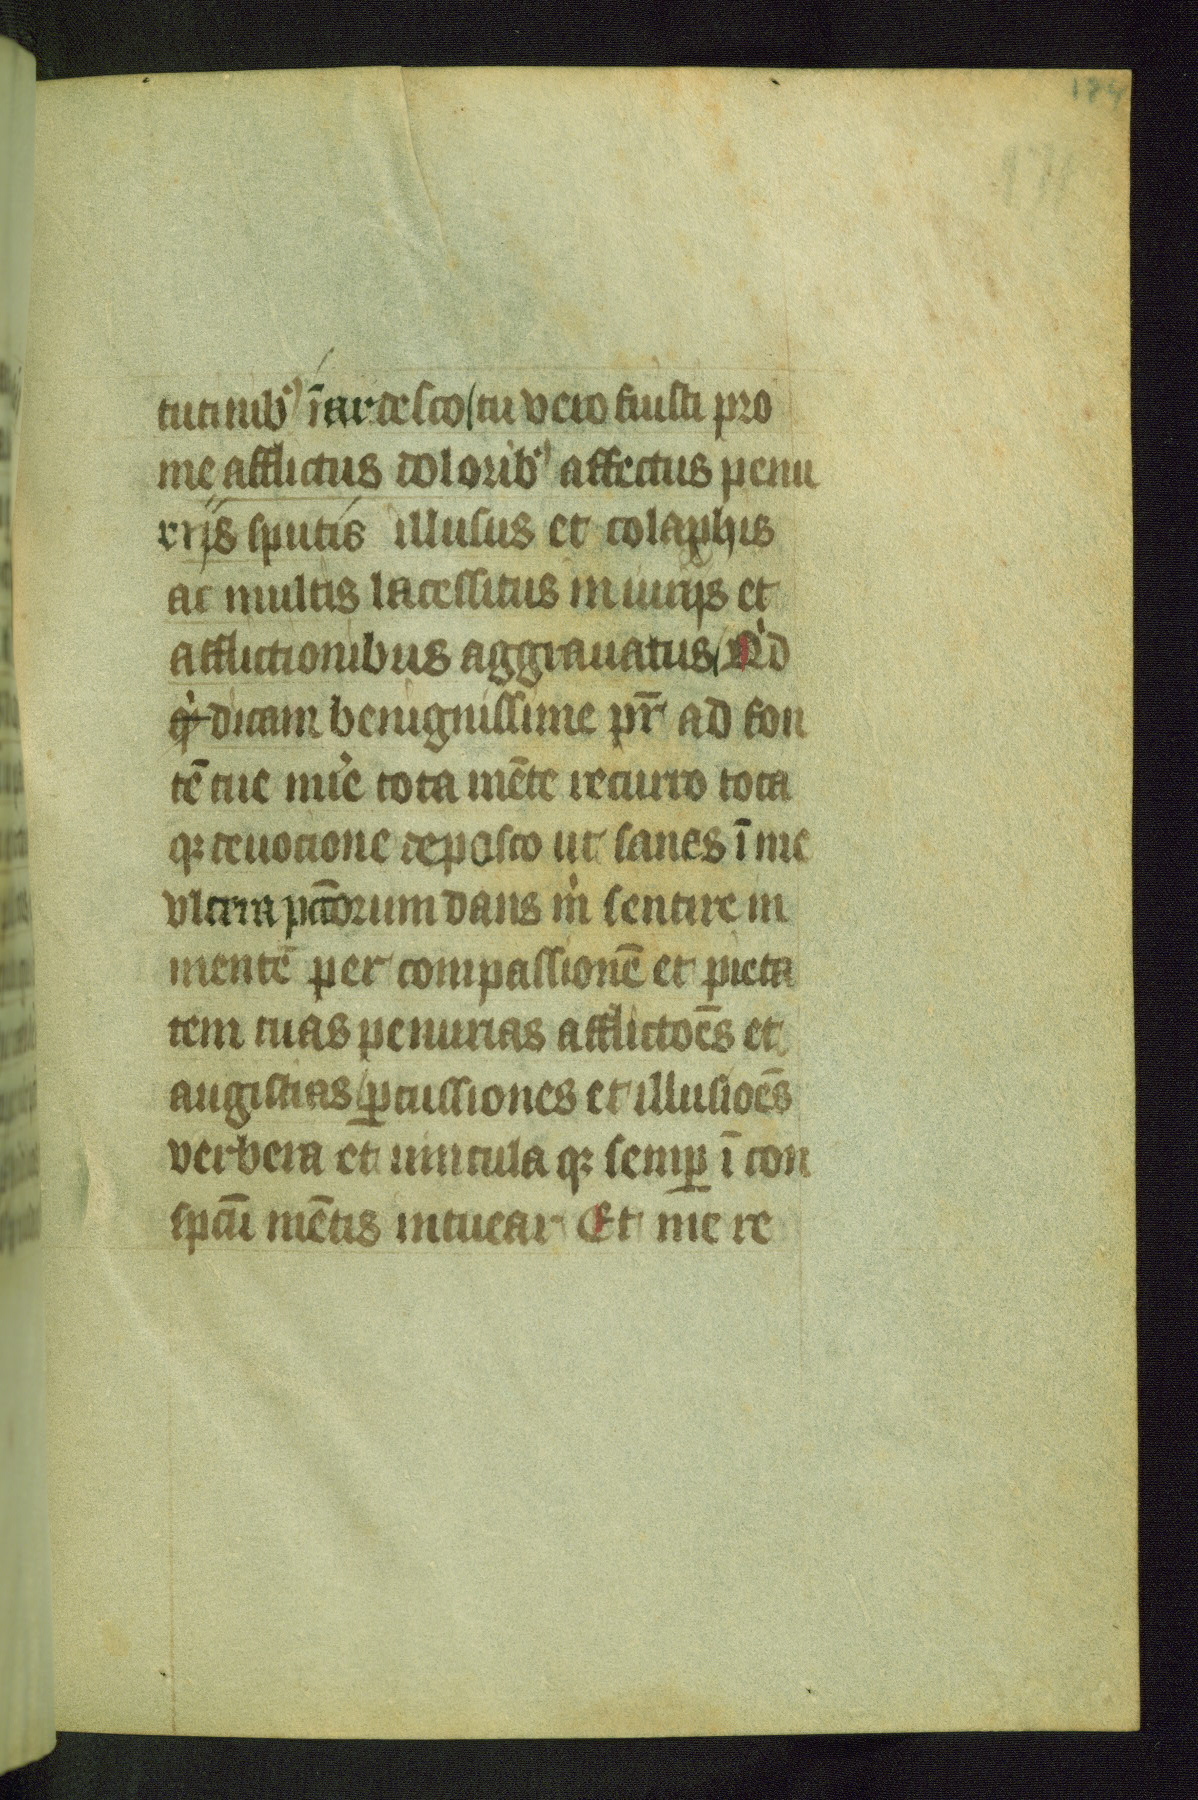 184
tutinibꝰ īardesco/tu vero fuisti pro
me afflictus doloribꝰ affectus penu
riis sputis illusus et colaphis
ac multis lacessitus iniuriis et
afflictionibus aggrauatus/Qͥd
qͥ dicam benignissime pr̄ ad fon
tē tue mīe tota mēte recurro tota
qꝫ deuocione deposco ut sanes ī me
vlcera pctōrum dans mͥ sentire in
mentē per compassionē et pieta
tem tuas penurias afflictōēs et
augistias/ꝑcussiones et illusioēs
verbera et uincula qꝫ semꝑ ī con
spctū mētis intuear Et me re